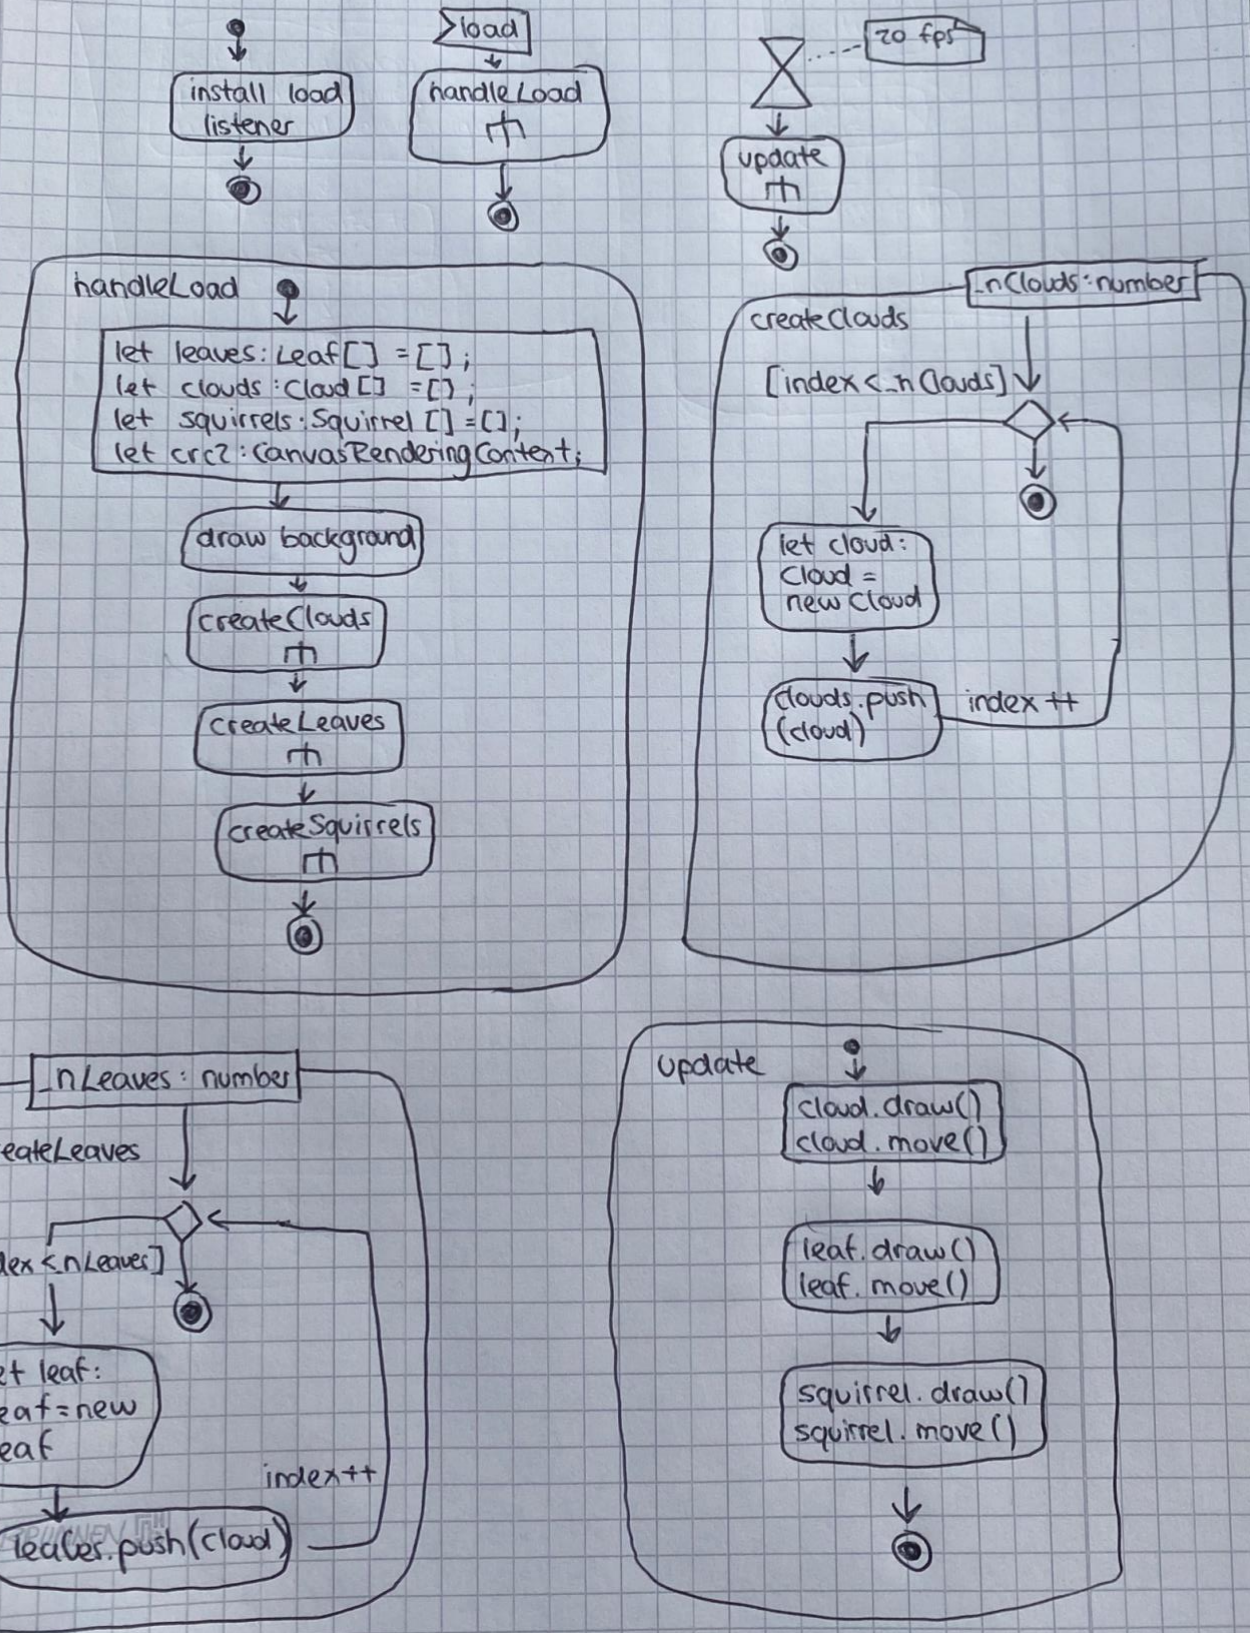 install load
listener
load
handleLoad
20 fps
update
handleLoad
let leaves: Leaf[] = [];
let clouds: Cloud[] = [];
let squirrels: Squirrel[] = [];
let crc2: CanvasRenderingContext;
draw background
createClouds
createLeaves
createSquirrels
_nClouds: number
createClouds
[index < _nClouds]
let cloud:
Cloud =
new Cloud
clouds.push
(cloud)
index ++
_nLeaves: number
eateLeaves
dex < _nLeaves]
et leaf:
eaf = new
eaf
index++
leaves.push(cloud)
update
cloud.draw()
cloud.move()
leaf.draw()
leaf.move()
squirrel.draw()
squirrel.move()